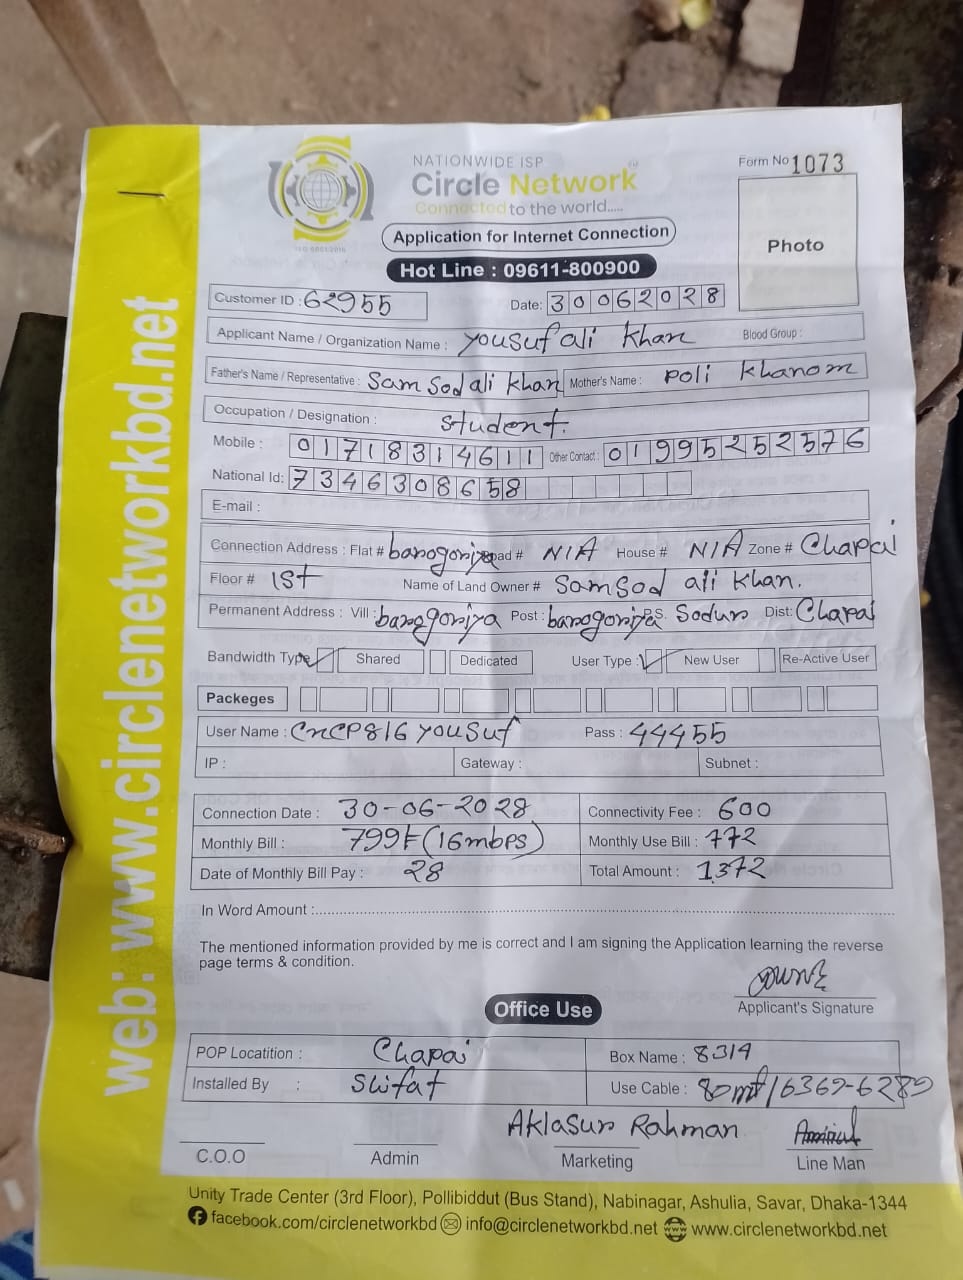 NATIONWIDE ISP
Circle Network
Connected to the world.....
ISO 9001:2015
Form No 1073
Application for Internet Connection
Photo
Hot Line : 09611-800900
Customer ID : 62955 Date: 30062028
Applicant Name / Organization Name : Yousuf ali Khan Blood Group :
Father's Name / Representative : Sam Sod ali Khan Mother's Name : Poli Khanom
Occupation / Designation : Student.
Mobile : 01718314611 Other Contact : 01995252576
National Id: 7346308658
E-mail :
Connection Address : Flat # barogoriya Road # N/A House # N/A Zone # Chapai
Floor # 1st Name of Land Owner # Samsod ali Khan.
Permanent Address : Vill : barogoriya Post : barogoriya P.S. Sodur Dist: Chapai
Bandwidth Type Shared Dedicated User Type : New User Re-Active User
Packeges
User Name : CNCP816 YOUSUf Pass : 44455
IP : Gateway : Subnet :
Connection Date : 30-06-2028 Connectivity Fee : 600
Monthly Bill : 799৳ (16mbps) Monthly Use Bill : 772
Date of Monthly Bill Pay : 28 Total Amount : 1372
In Word Amount :
The mentioned information provided by me is correct and I am signing the Application learning the reverse
page terms & condition.
Applicant's Signature
Office Use
POP Locatition : Chapai Box Name : 8314
Installed By : Sifat Use Cable : 80mt/6369-6289
Aklasur Rahman
C.O.O Admin Marketing Line Man
Unity Trade Center (3rd Floor), Pollibiddut (Bus Stand), Nabinagar, Ashulia, Savar, Dhaka-1344
facebook.com/circlenetworkbd info@circlenetworkbd.net www.circlenetworkbd.net
web: www.circlenetworkbd.net